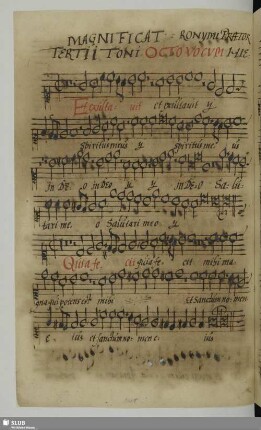 MAGNIFICAT RONYMI PRÆTOR
TERTII TONI OCTO VOCUM HIE
Et exulta vit et exultavit y
spiritus meus y spiritus me us
IN DEO in DEO y y in DEO Salu-
tari me o Salutari meo y
Quia fe cit quia fe cit mihi ma-
gna qui potens est mihi et Sanctum no men
e ius et sanctum no men e ius
SLUB